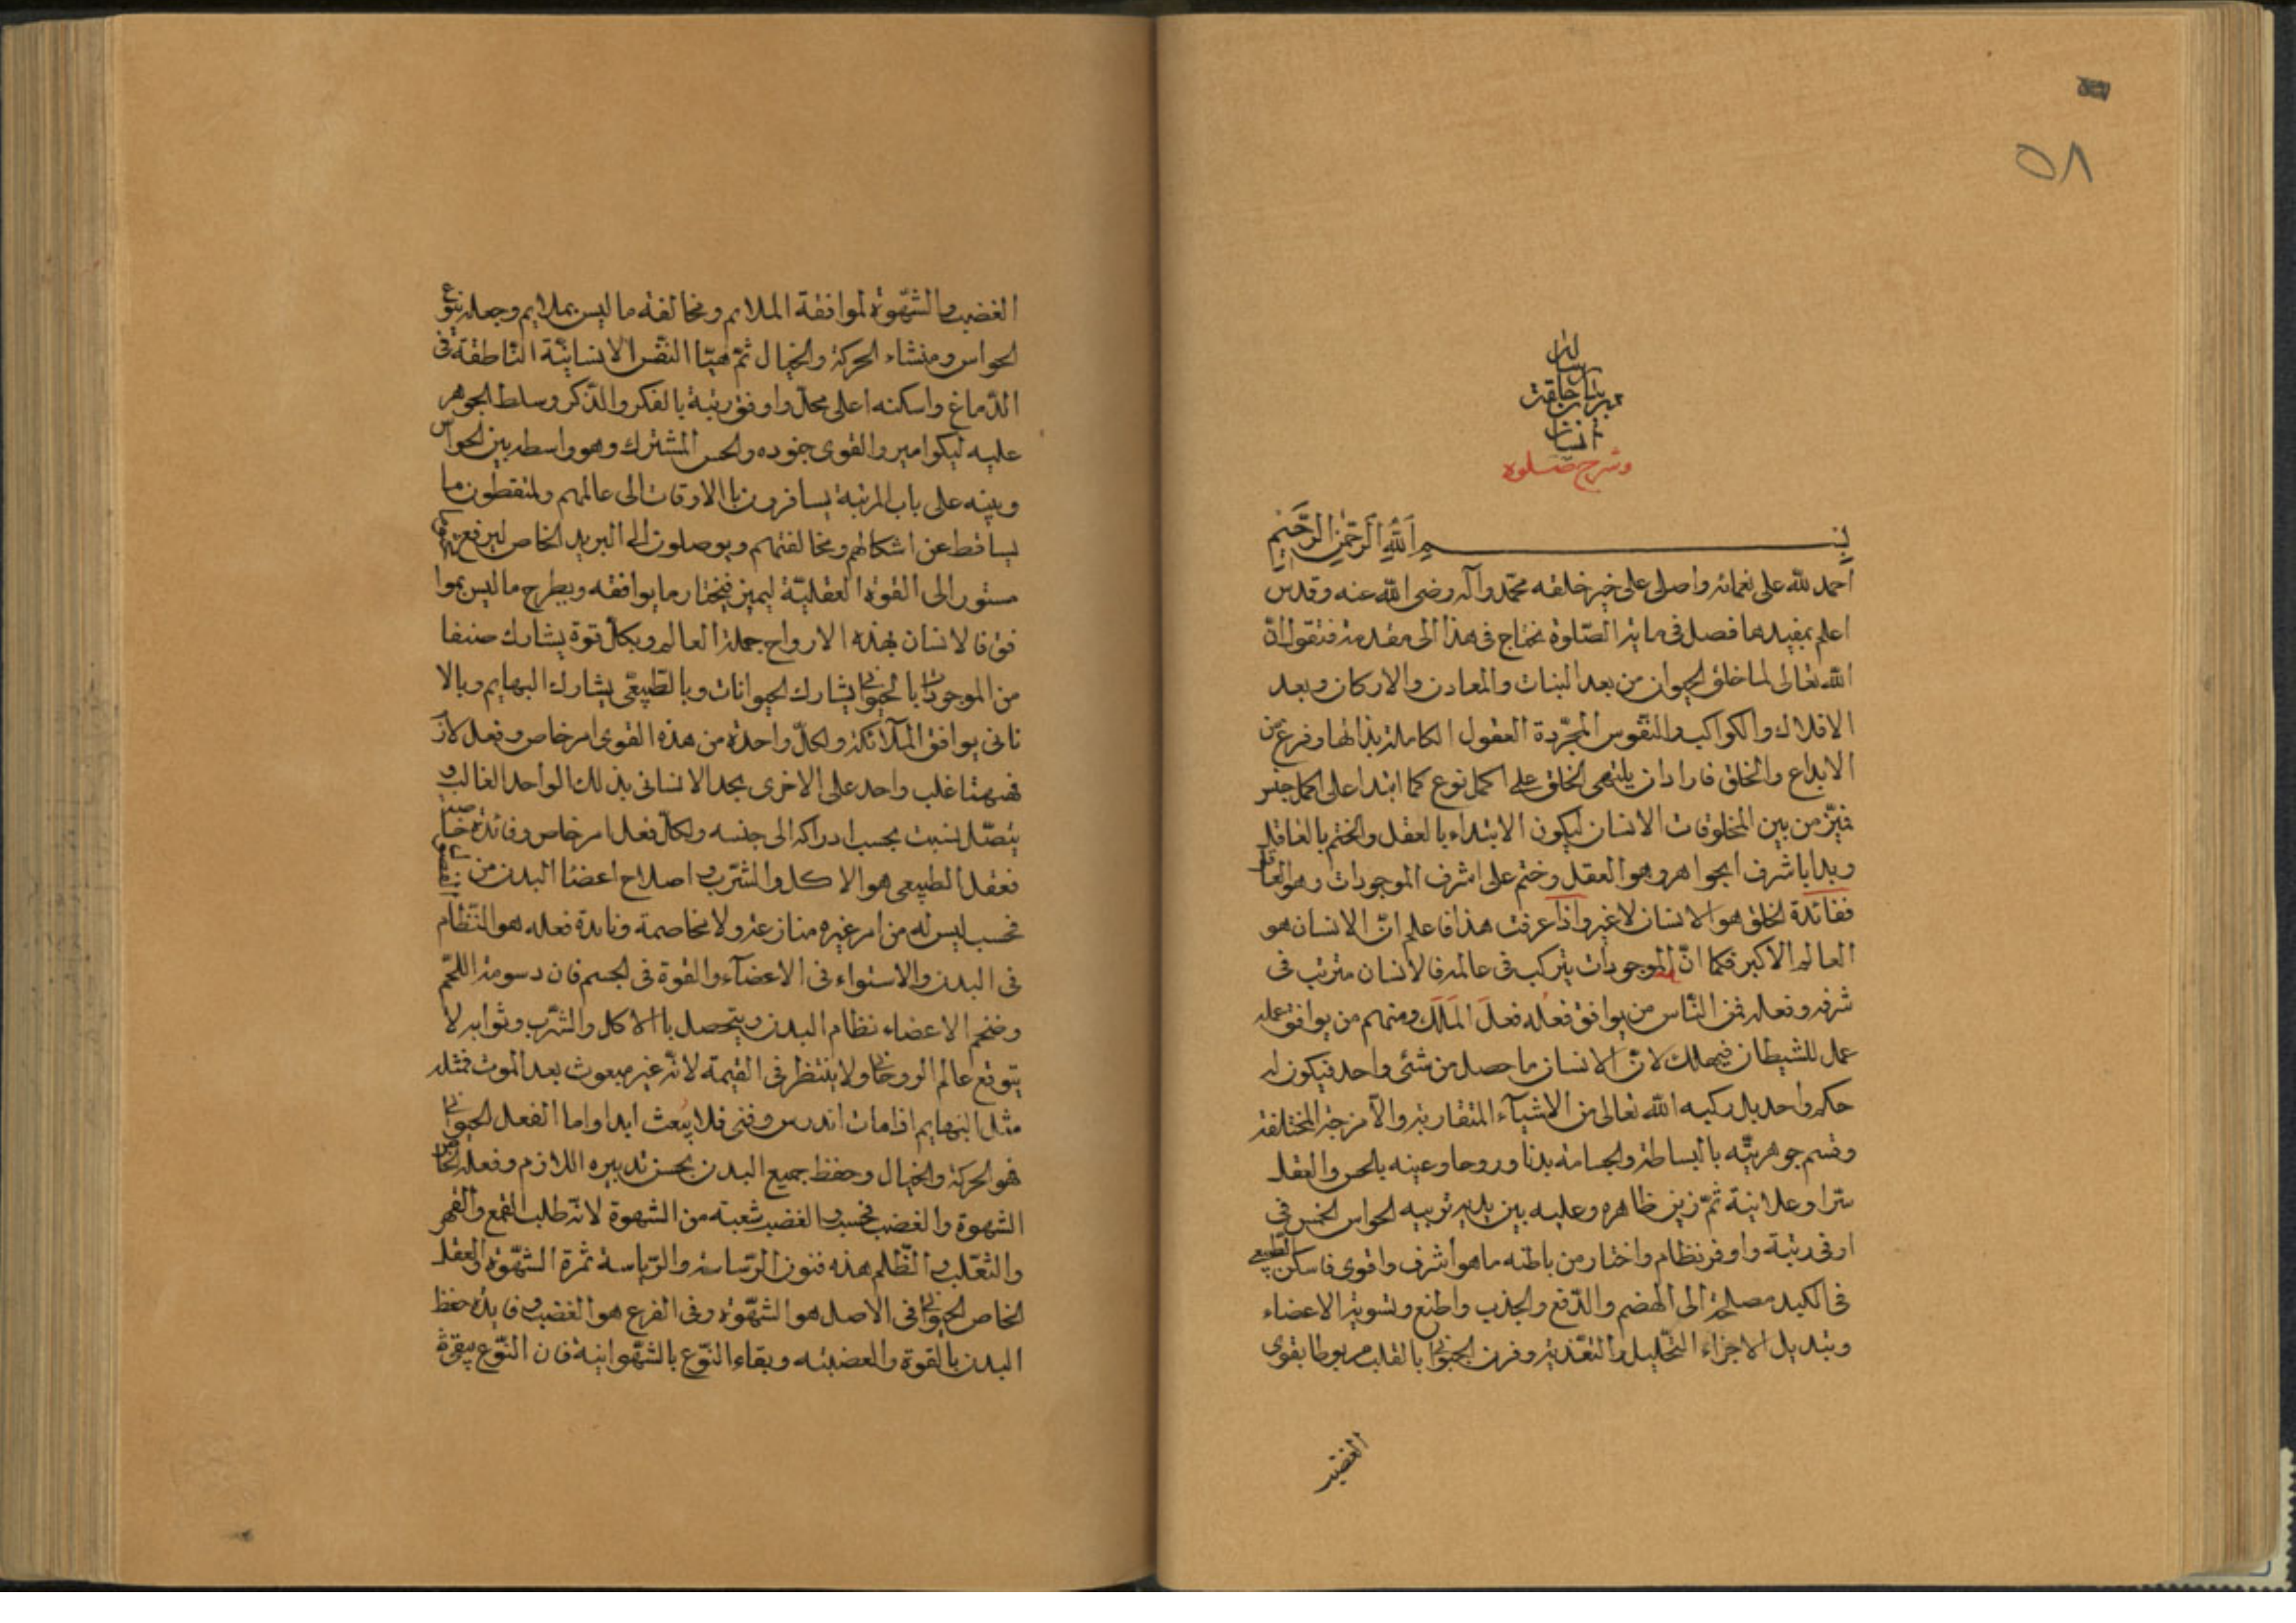 ٥٨
رساله
در بيان خلقت
انسان
وشرح صلوة
بسم الله الرحمن الرحيم
احمد لله على نعمائه واصلى على خير خلقه محمد وآله رضى الله عنه وقدس
اعلم بمفيدها فصل فى ماية الصلوة نحتاج فى هذا الى مقدمة فنقول ان
الله تعالى لما خلق الحيوان من بعد النبات والمعادن والاركان وبعد
الافلاك والكواكب والنفوس المجردة العقول الكاملة بذاتها وفرغ من
الابداع والخلق فاراد ان ينتهى الخلق على اكمل نوع كما ابتدا على اكمل جنس
فميّز من بين المخلوقات الانسان ليكون الابتداء بالعقل والختم بالعاقل
وبدا باشرف الجواهر وهو العقل وختم على اشرف الموجودات وهو العاقل
ففائدة الخلق هو الانسان لا غير واذا عرفت هذا فاعلم انّ الانسان هو
العالم الاكبر فكما انّ الموجودات يتركب فى عالمه فالانسان مترتب فى
شرفه وفعله فمن النّاس من يوافق فعله فعلَ المَلَك ومنهم من يوافق عمله
عمل للشيطان فيهلك لانّ الانسان ما حصل من شئى واحد فيكون له
حكم واحد بل ركبه الله تعالى من الاشيآء المتقاربة والآمزجة المختلفة
وقسم جوهريّته بالبساطة والجسامة بدنا وروحا وعينه بالحس والعقل
سّرا وعلانية ثمّ زين ظاهره وعليه بين بديه توبيه الحواس الخمس فى
اوفى رتبة واوفر نظام واختار من باطنه ما هو اشرف واقوى فاسكن الطبيعى
فى الكبد مصلحة الى الهضم والدّفع والجذب واطنع وتسوية الاعضاء
وتبديل الاجزاء التّحليل والتغّذية وقرن الحيوانى بالقلب مربوطا بقوى
الغضب والشّهوة لموافقة الملايم ومخالفة ما ليس بملايم وجعله ينبوع
الحواس ومنشاء الحركة والخيال ثمّ هيّا النفس الانسانيّة النّاطقة فى
الدّماغ واسكنه اعلى محلّ واوفق رتبة بالفكر والذّكر وسلط الجوهر
عليه ليكو امير والقوى جنوده والحس المشترك وهو واسطه بين الحواس
وبينه على باب المرتبة يسافرون باالاوقات الى عالمهم ولتقطون ما
يساقط عن اشكالهم ومخالفتهم ويوصلون الى البريد الخاص ليرفع
مستور الى القوة العقليّة ليميز فيختار ما يوافقه ويطرح ما ليس بموا
فق فالانسان بهذه الارواح جملة العالم وبكلّ قوة يشارك صنفا
من الموجودات بالحيوانى يشارك الحيوانات وبالطّبيعّى يشارك البهايم وبالا
نانى يوافق الملآئكة ولكلّ واحدة من هذه القوى امر خاص وفعل لازم
فمهمتا غلب واحد على الاخرى يجد الانسانى بذلك الواحد الغالب و
يتصّل نسبت بحسب ادراكه الى جنسه ولكلّ فعل امر خاص وفائدة خاصة
ففعل الطبيعى هو الاكل والشّرب واصلاح اعضا البدن من
فحسب ليس له من امر غيره منازعة ولا مخاصمة وفايدة فعله هو النّظام
فى البدن والاستواء فى الاعضآء والقوة فى الجسم فان دسومة اللحّم
وضخم الاعضاء نظام البدن ويتحصل باالاكل والشّرب وثوابه لا
يتوقع عالم الروحانى ولا ينتظر فى القيمة لانّه غير مبعوث بعد الموت فمثله
مثل البهايم اذا مات اندرس وفنى فلا يُبعث ابدا واما الفعل الحيوانى
فهو الحركة والخيال وحفظ جميع البدن بحسن تدبيره اللازم وفعله الخاص
الشهوة والغضب فحسب والغضب شعبة من الشهوة لانّه طلب القمع والقهر
والتغّلب والظّلم هذه فنون الرّياسة والرّياسة ثمرة الشّهوة والفعل
الخاص الحيوانى فى الاصل هو الشّهّوة وفى الفرع هو الغضب وفايدة حفظ
البدن بالقوة والغضبيه وبقاء النّوع بالشّهوانية فان النّوع يبقى